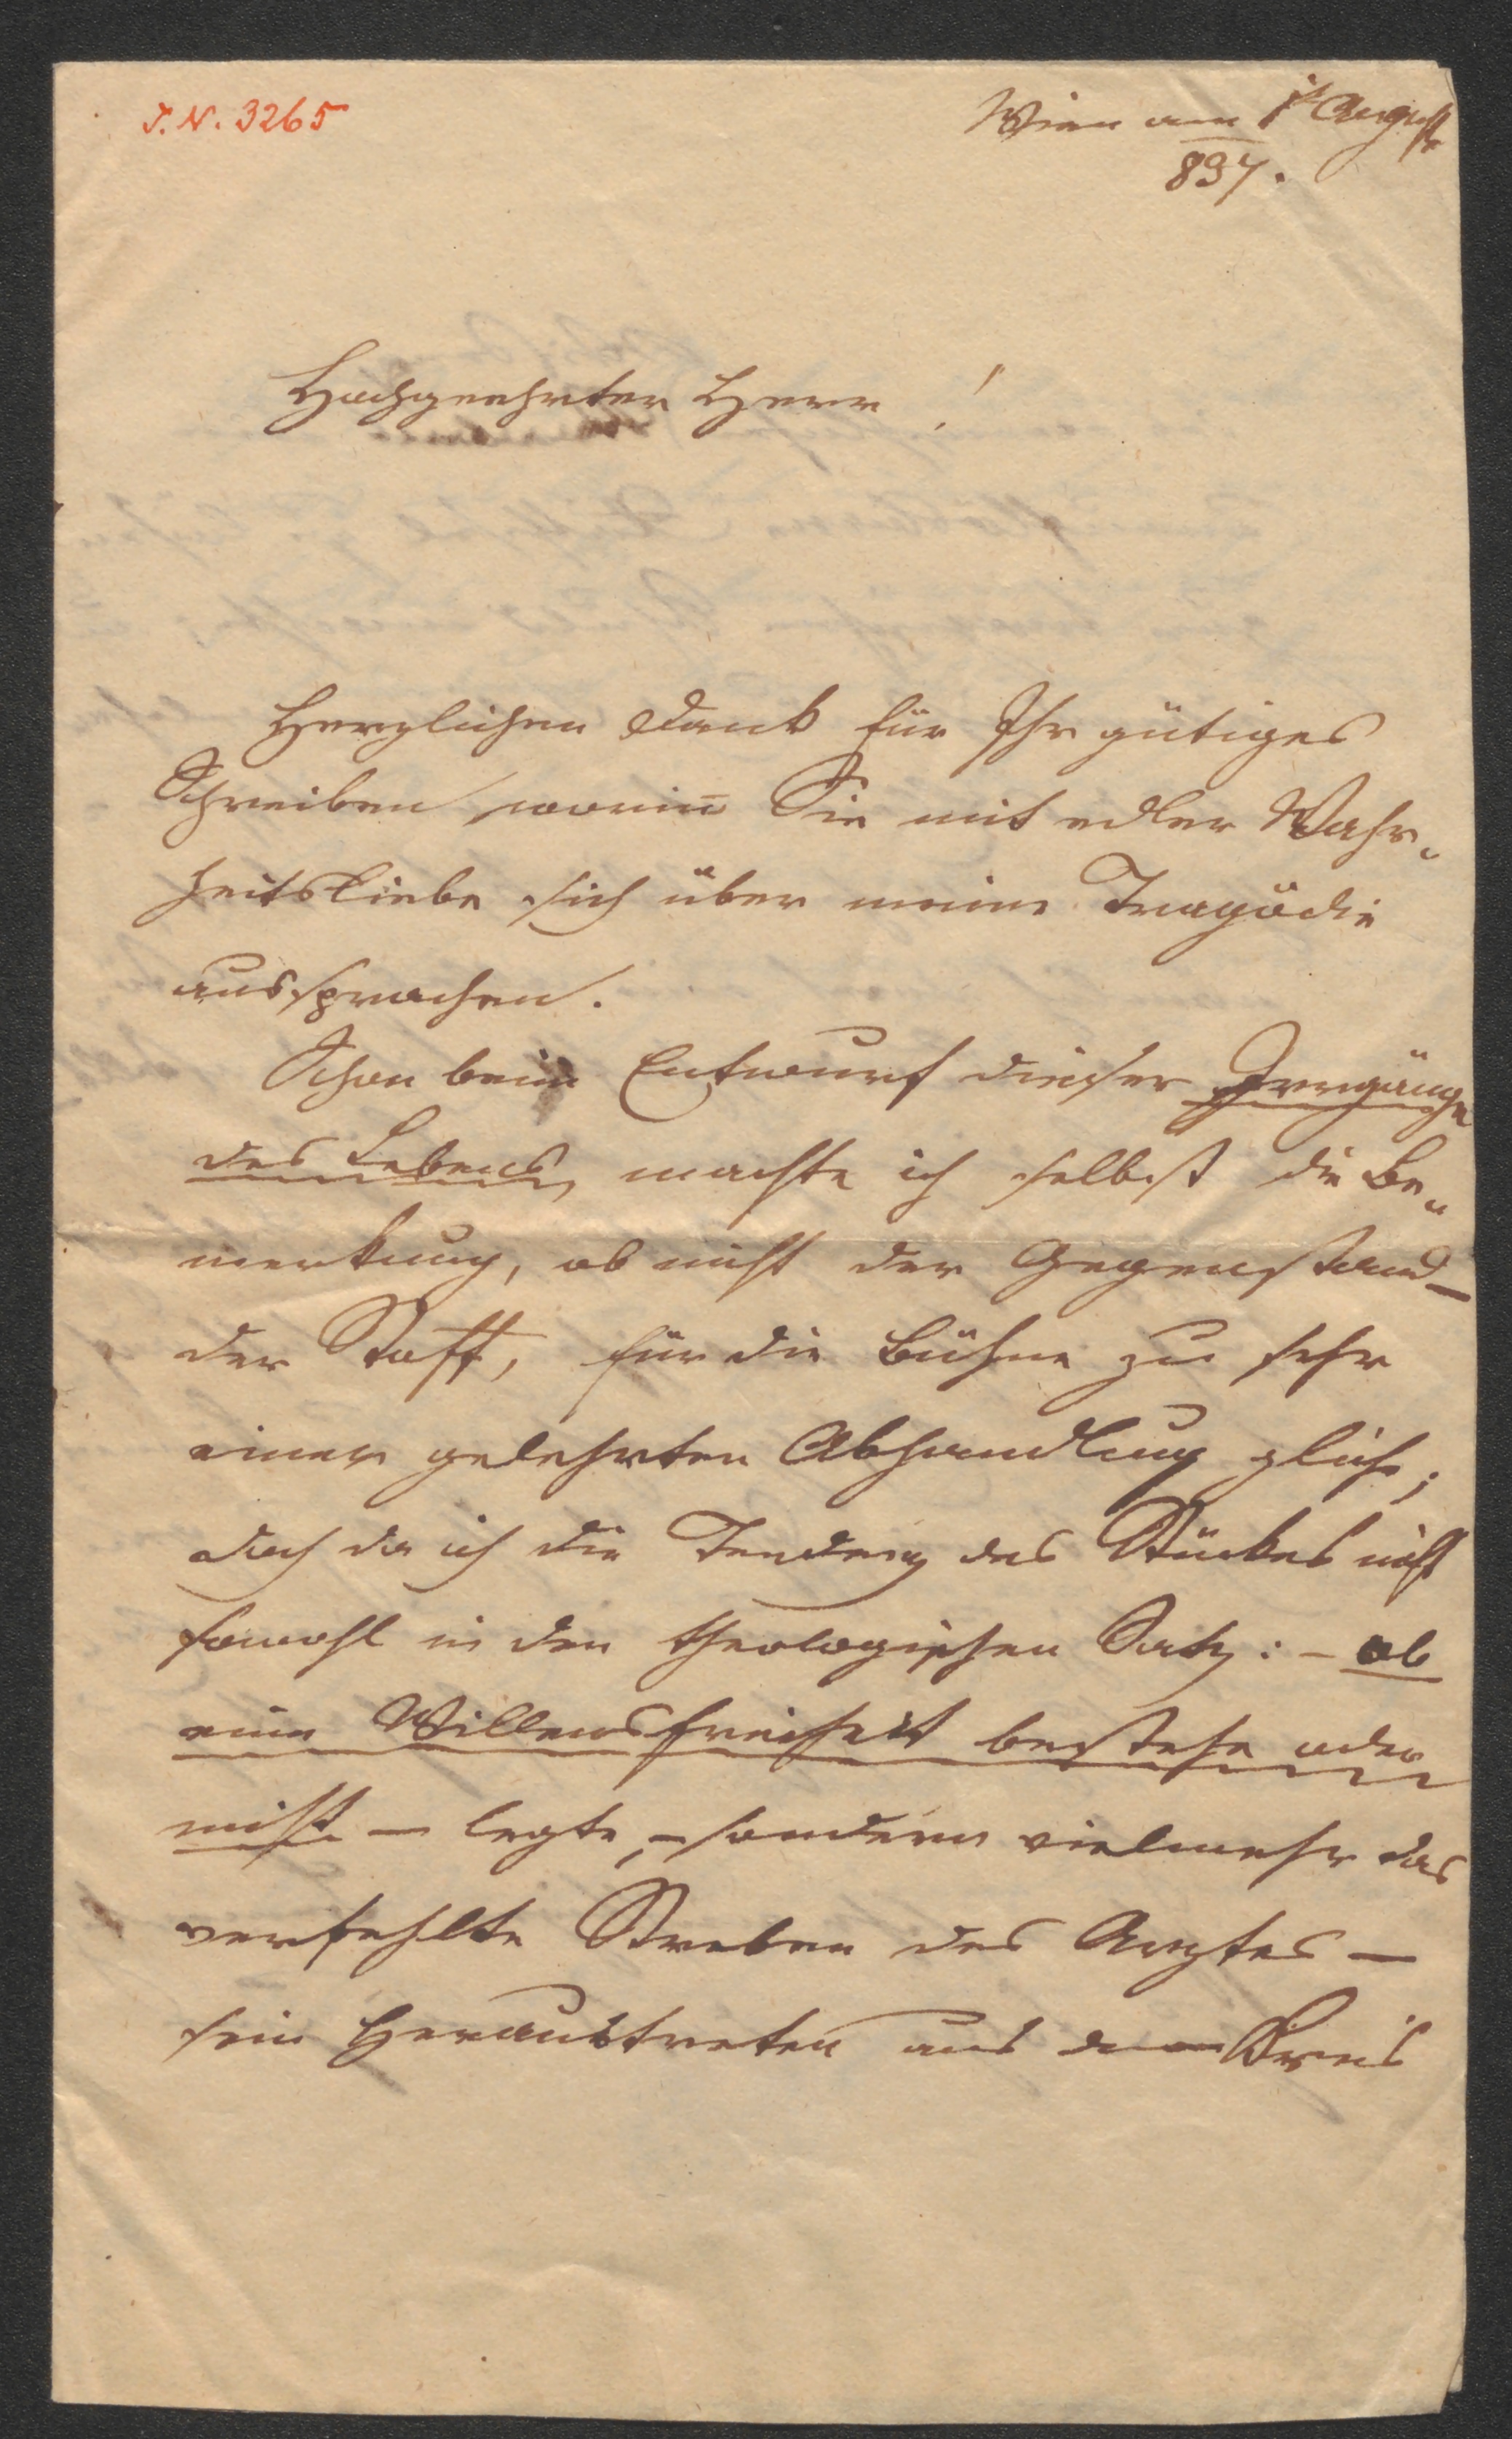 J. N. 3265
Wien am 1t August
837.
Hochgeehrter Herr!
Herzlichen Dank für Ihr gütiges
Schreiben worin̅ Sie mit edler Wahr„
heitsliebe sich über meine Tragödie
aussprachen.
Schon beim Entwurf dieser Irrgänge
des Lebens, machte ich selbst die Be„
merkung, ob nicht der Gegenstand –
der Stoff, für die Bühne zu sehr
einer gelehrten Abhandlung gliche;
doch da ich die Tendenz des Stückes nicht
sowohl in den theologischen Satz: – ob
eine Willensfreiheit bestehe oder
nicht – legte, – sondern vielmehr das
verfehlte Streben des Arztes –
sein Heraustreten aus dem Kreis